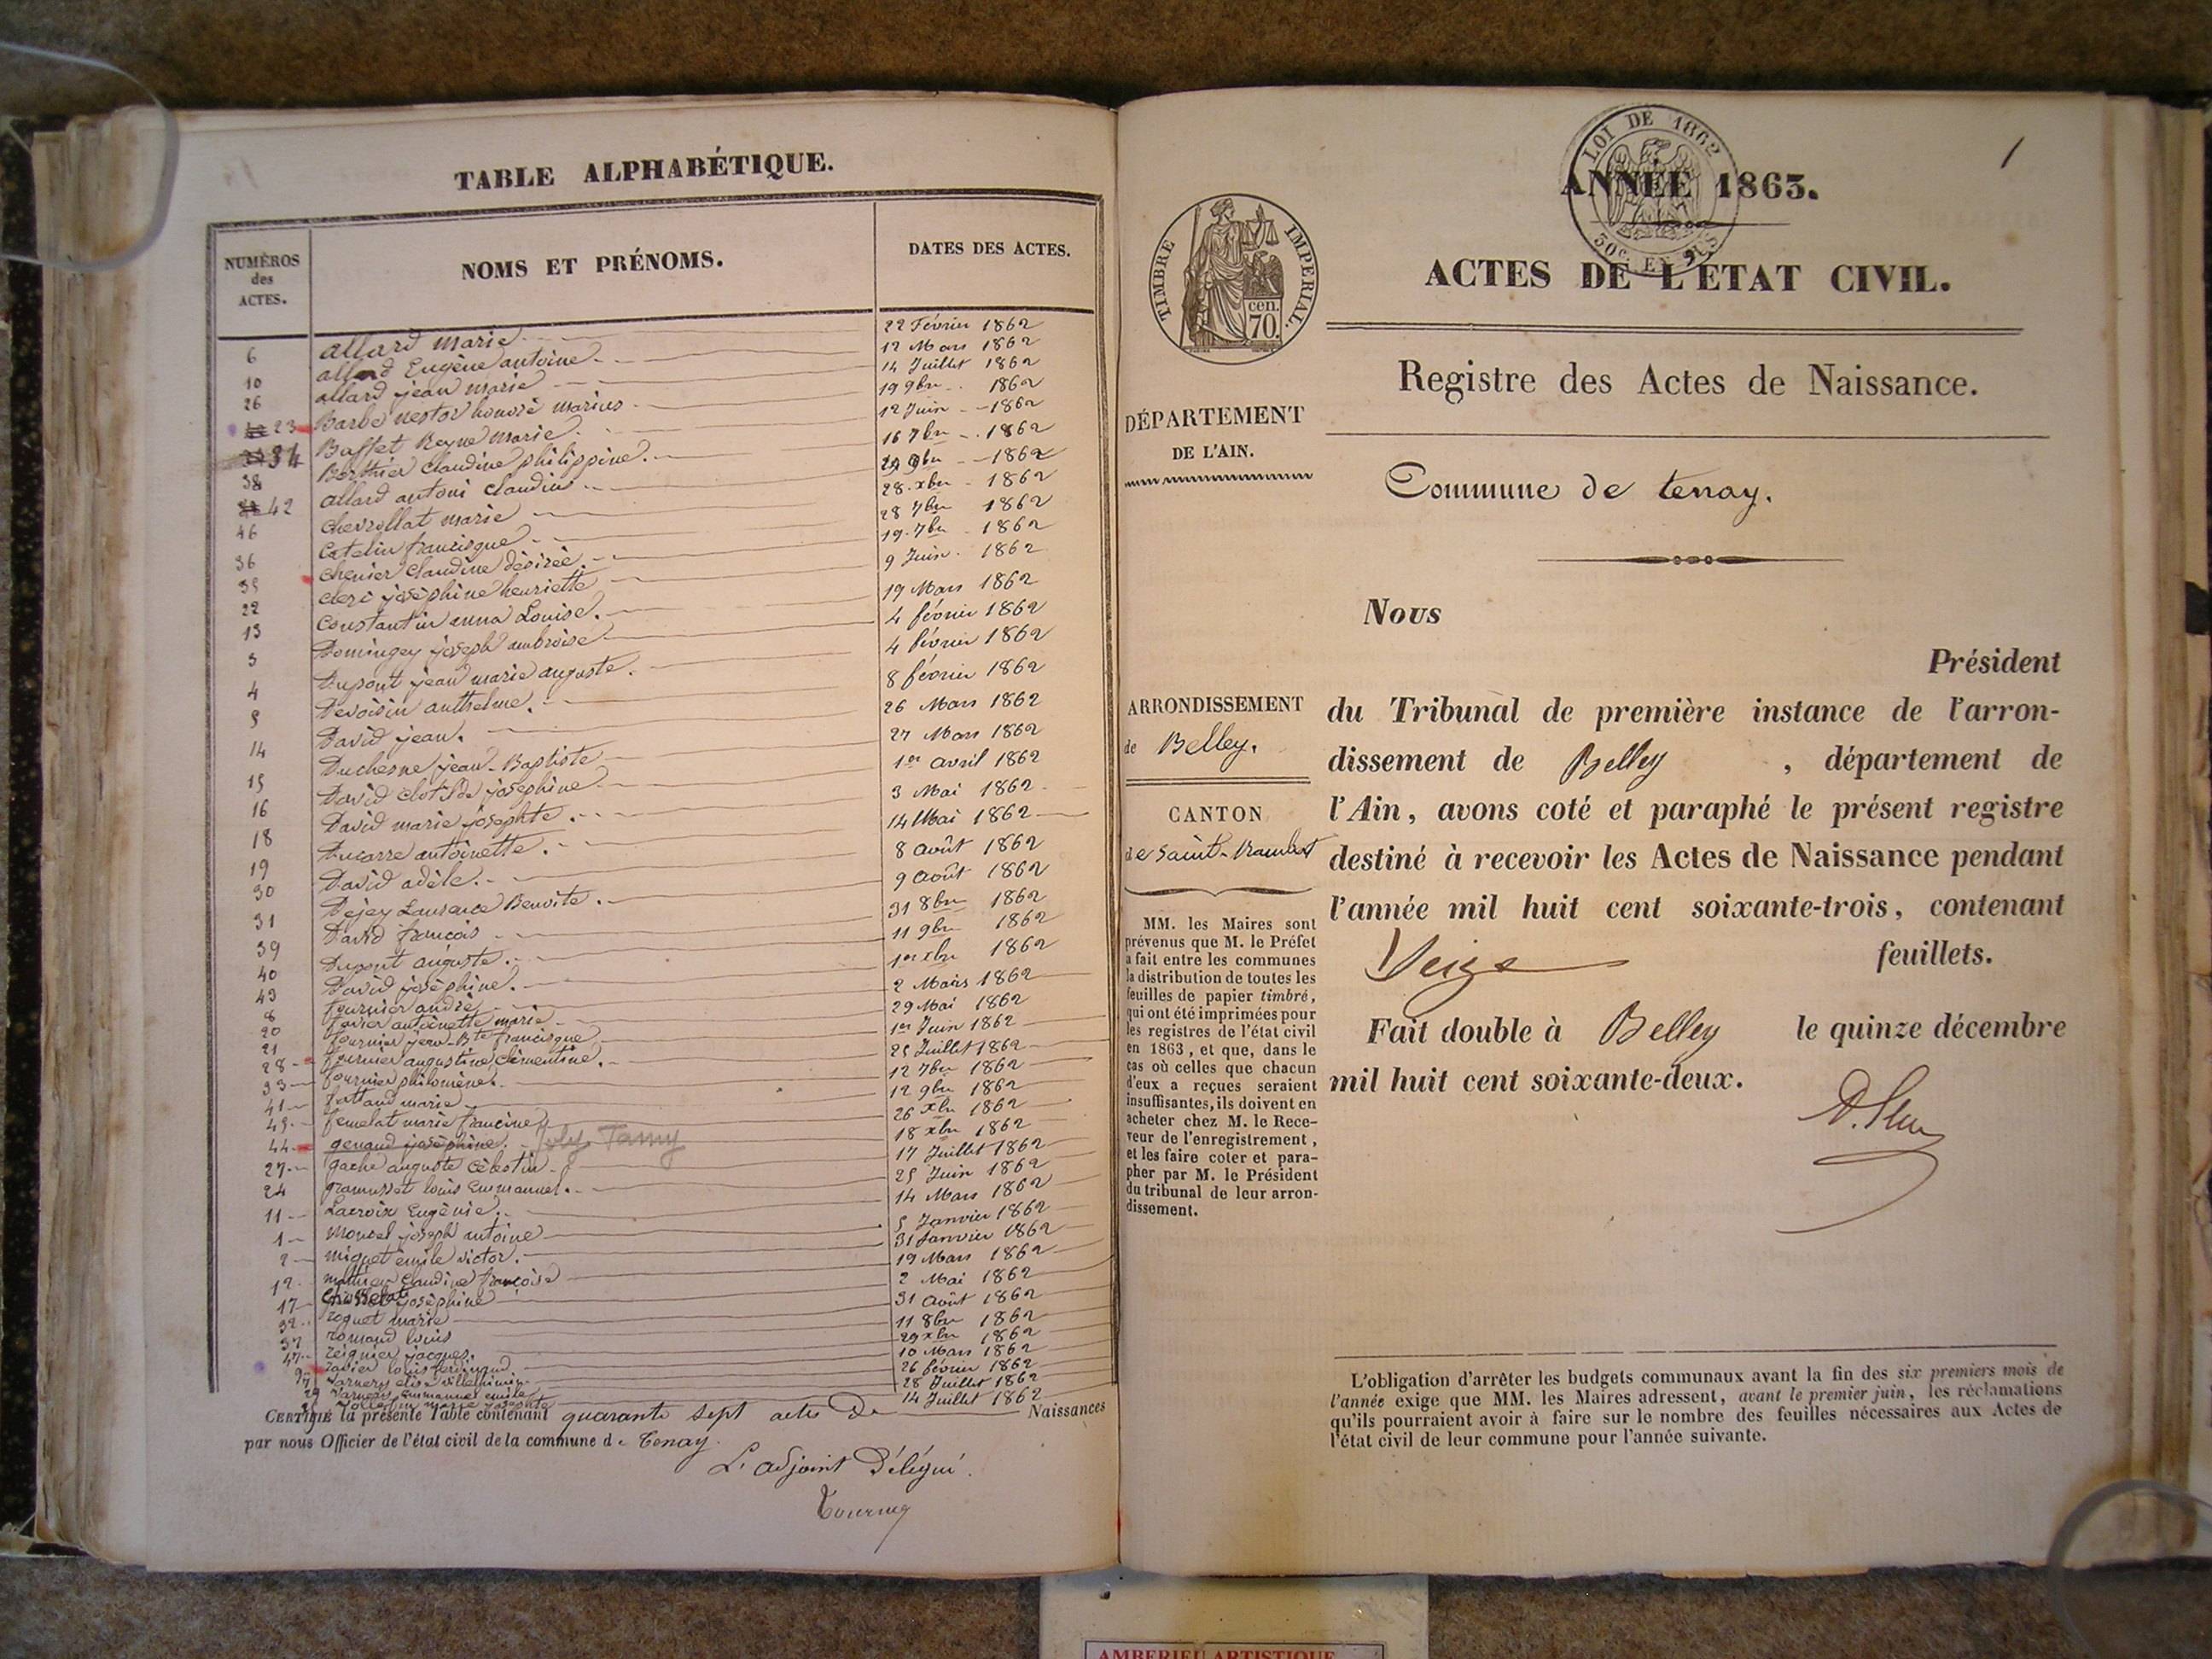 TABLE ALPHABÉTIQUE.
NUMÉROS des ACTES.
NOMS ET PRÉNOMS.
DATES DES ACTES.
6 allard marie 22 Février 1862
10 allard Eugène antoine 12 Mars 1862
26 allard jean marie 14 Juillet 1862
Barbe nestor honoré marius 19 9bre 1862
23 Buffet Reyne marie 12 Juin 1862
34 Berthier Claudine philippine 16 7bre 1862
38 allard antoni claudius 29 9bre 1862
42 chevrollat marie 28 xbre 1862
46 Catelin francisque 28 7bre 1862
36 chenier Claudine désirée 19 7bre 1862
35 clerc joséphine henriette 9 Juin 1862
22 Constantin anna Louise 19 Mars 1862
13 Domingey joseph ambroise 4 février 1862
3 Dupont jean marie auguste 4 février 1862
4 Devoisin anthelme 8 février 1862
5 David jean 26 Mars 1862
14 Duchesne jean-Baptiste 27 Mars 1862
15 David clotilde joséphine 1er avril 1862
16 David marie josephte 3 Mai 1862
18 Ducarre antoinette 14 Mai 1862
19 David adèle 8 août 1862
30 Dejey Laurence Benoite 9 août 1862
31 David françois 31 8bre 1862
39 Dupont auguste 11 9bre 1862
40 David joséphine 1er xbre 1862
43 fournier andré 2 Mars 1862
8 favier antoinette marie 29 Mai 1862
20 fournier jean-Bte francisque 1er Juin 1862
21 fournier augustine clémentine 25 Juillet 1862
28 fournier philomène 12 7bre 1862
33 marie 12 9bre 1862
41 femelat marie francine 26 xbre 1862
45 genaud joséphine Joly Tamy 18 xbre 1862
44 gache auguste célestin 17 Juillet 1862
27 gramusset louis Emmanuel 25 Juin 1862
24 Lacroix Eugénie 14 Mars 1862
11 Moncel joseph antoine 5 Janvier 1862
1 miguet émile victor 31 Janvier 1862
2 mathieu claudine françoise 19 Mars 1862
12 joséphine 2 Mai 1862
17 roguet marie 31 août 1862
32 romand louis 11 8bre 1862
37 reignier jacques 29 xbre 1862
47 ravier louis ferdinand 10 Mars 1862
Varnery elise 26 février 1862
29 Varnery Emmanuel émile 28 Juillet 1862
marie josephte 14 Juillet 1862
CERTIFIÉ la présente Table contenant quarante sept actes de Naissances
par nous Officier de l'état civil de la commune de Tenay.
L'adjoint Délégué.
1
LOI DE 1862
50c EN SUS
ANNÉE 1863.
TIMBRE IMPERIAL.
cen. 70.
ACTES DE L'ÉTAT CIVIL.
Registre des Actes de Naissance.
DÉPARTEMENT
DE L'AIN.
Commune de tenay.
Nous
Président
ARRONDISSEMENT
de Belley.
CANTON
de Saint-Rambert
du Tribunal de première instance de l'arron-
dissement de Belley , département de
l'Ain, avons coté et paraphé le présent registre
destiné à recevoir les Actes de Naissance pendant
l'année mil huit cent soixante-trois, contenant
Seize feuillets.
Fait double à Belley le quinze décembre
mil huit cent soixante-deux.
MM. les Maires sont
prévenus que M. le Préfet
a fait entre les communes
la distribution de toutes les
feuilles de papier timbré,
qui ont été imprimées pour
les registres de l'état civil
en 1863, et que, dans le
cas où celles que chacun
d'eux a reçues seraient
insuffisantes, ils doivent en
acheter chez M. le Rece-
veur de l'enregistrement,
et les faire coter et para-
pher par M. le Président
du tribunal de leur arron-
dissement.
L'obligation d'arrêter les budgets communaux avant la fin des six premiers mois de
l'année exige que MM. les Maires adressent, avant le premier juin, les réclamations
qu'ils pourraient avoir à faire sur le nombre des feuilles nécessaires aux Actes de
l'état civil de leur commune pour l'année suivante.
AMBERIEU ARTISTIQUE